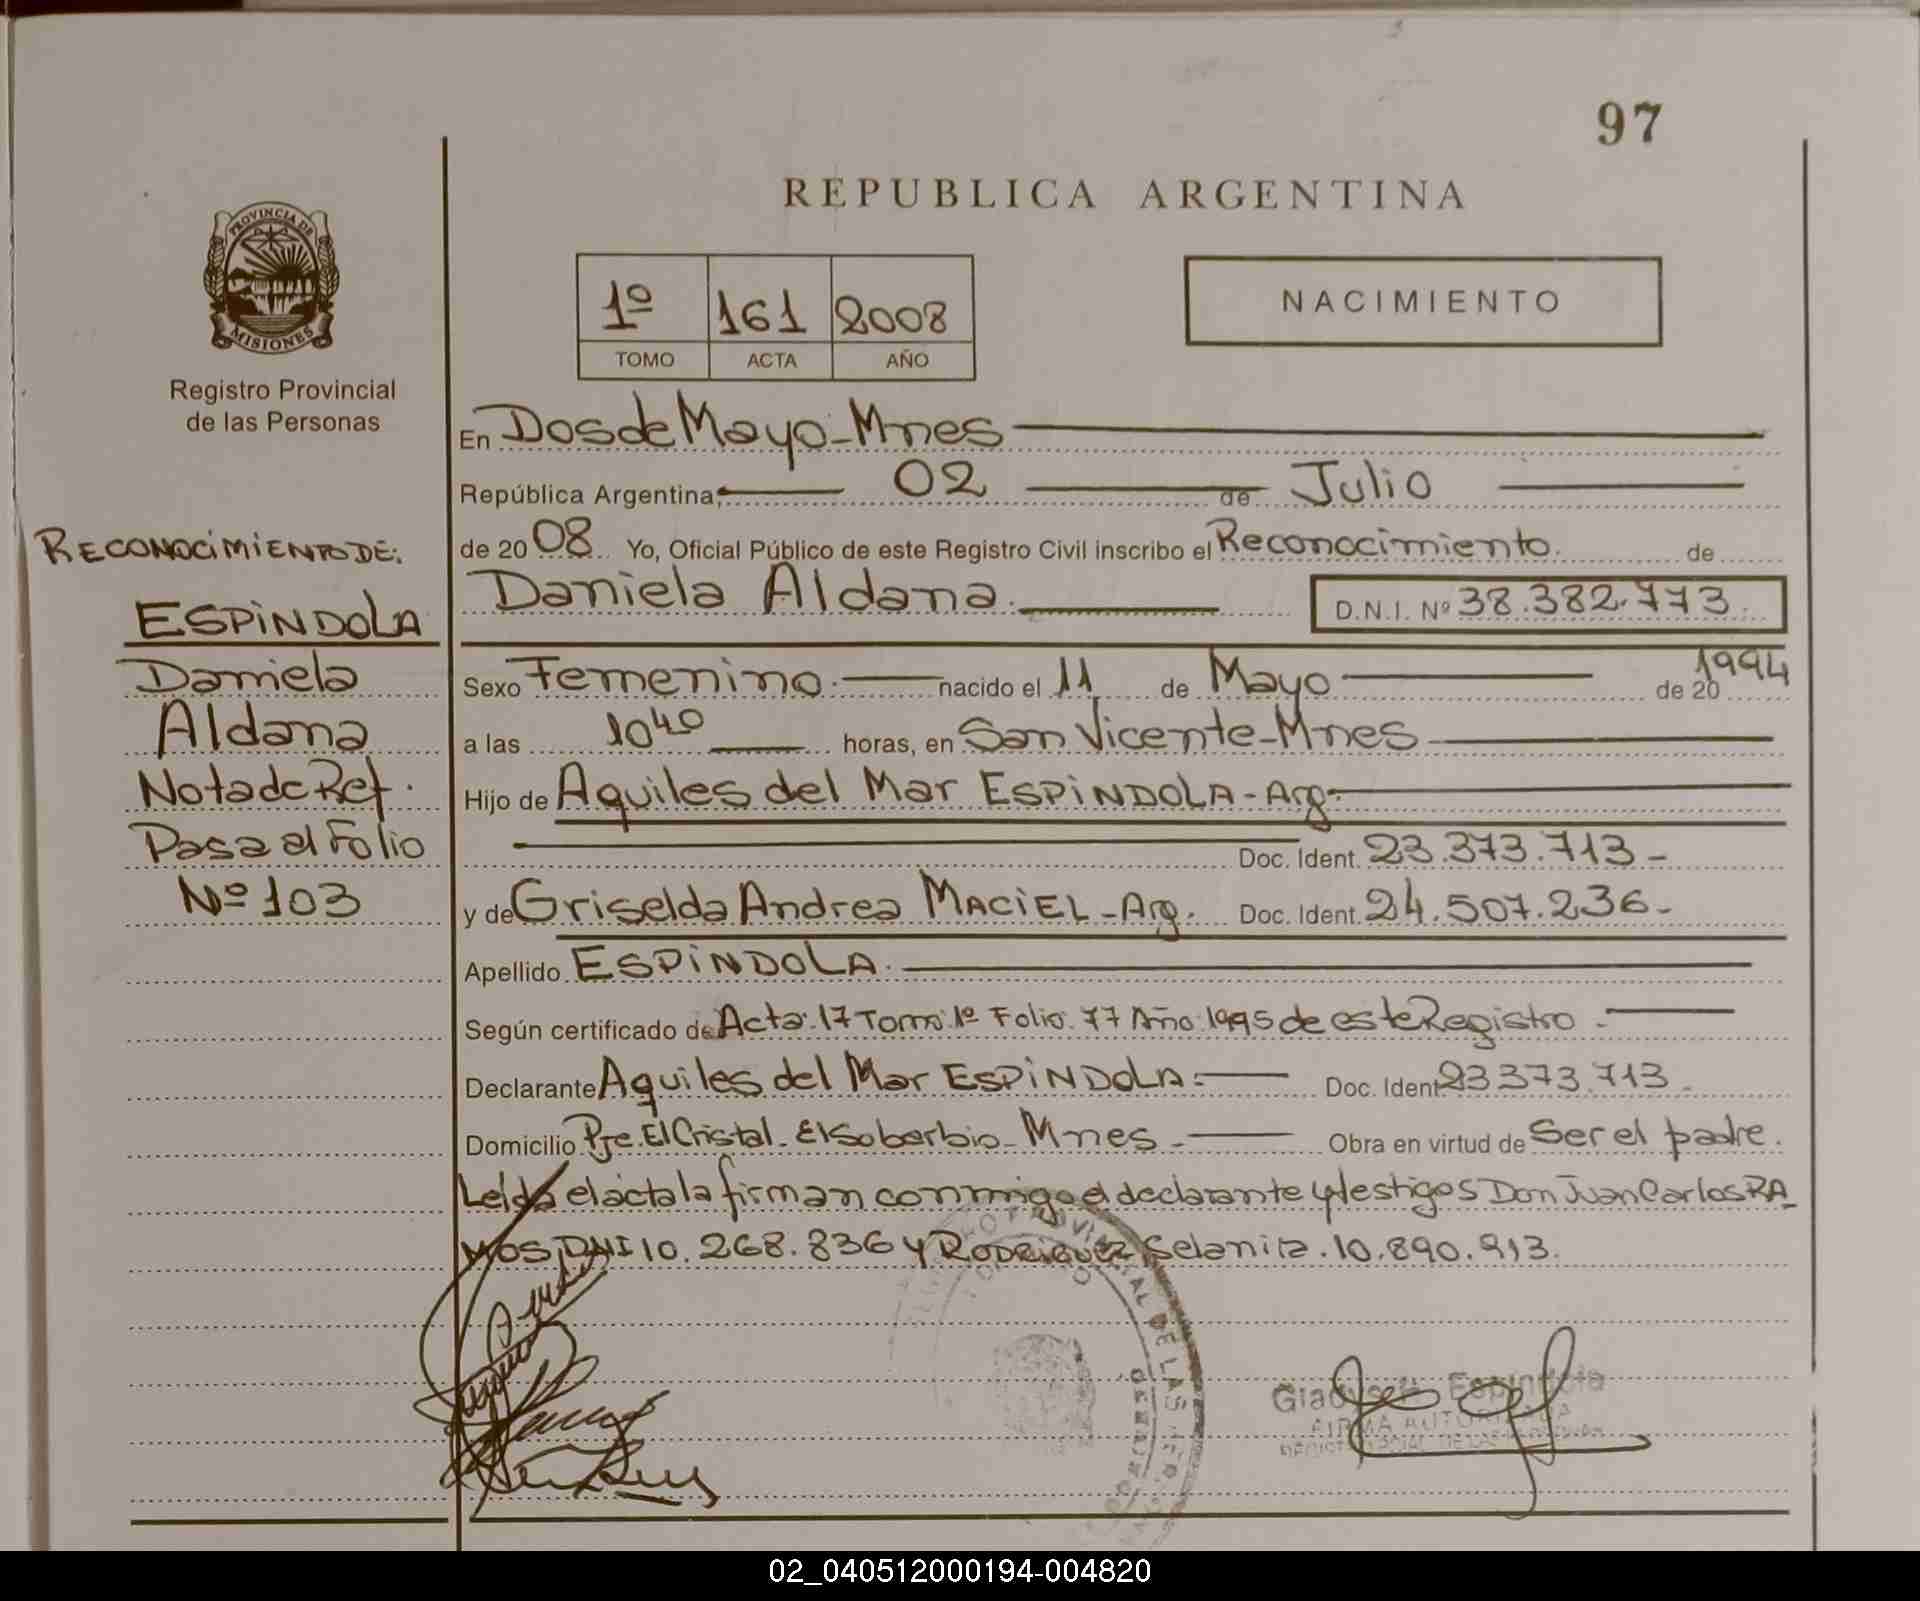 97
REPUBLICA ARGENTINA
PROVINCIA DE
MISIONES
Registro Provincial
de las Personas
1º 161 2008
TOMO ACTA AÑO
NACIMIENTO
En Dos de Mayo - Mnes
República Argentina, 02 de Julio
de 20 08 Yo, Oficial Público de este Registro Civil inscribo el Reconocimiento de
Daniela Aldana. D.N.I. Nº 38.382.773.
Sexo Femenino. nacido el 11 de Mayo de 20 1994
a las 10 40 horas, en San Vicente - Mnes
Hijo de Aquiles del Mar ESPINDOLA - Arg.
Doc. Ident. 23.373.713 -
y de Griselda Andrea MACIEL - Arg. Doc. Ident. 24.507.236 -
Apellido ESPINDOLA.
Según certificado de Acta: 17 Tomo: 1º Folio: 77 Año: 1995 de este Registro.
Declarante Aquiles del Mar ESPINDOLA. Doc. Ident 23 373.713.
Domicilio Pje. El Cristal - El Soberbio - Mnes - Obra en virtud de Ser el padre.
Leída el acta la firman conmigo el declarante y testigos Don Juan Carlos RA-
MOS, DNI 10.268.836 y RODRIGUEZ Selanira. 10.890.913.
RECONOCIMIENTO DE:
ESPINDOLA
Daniela
Aldana
Nota de Ref.
Pasa al Folio
Nº 103
PROVINCIAL DE LAS
Gladys Espindola
FIRMA AUTORIZADA
02_040512000194-004820